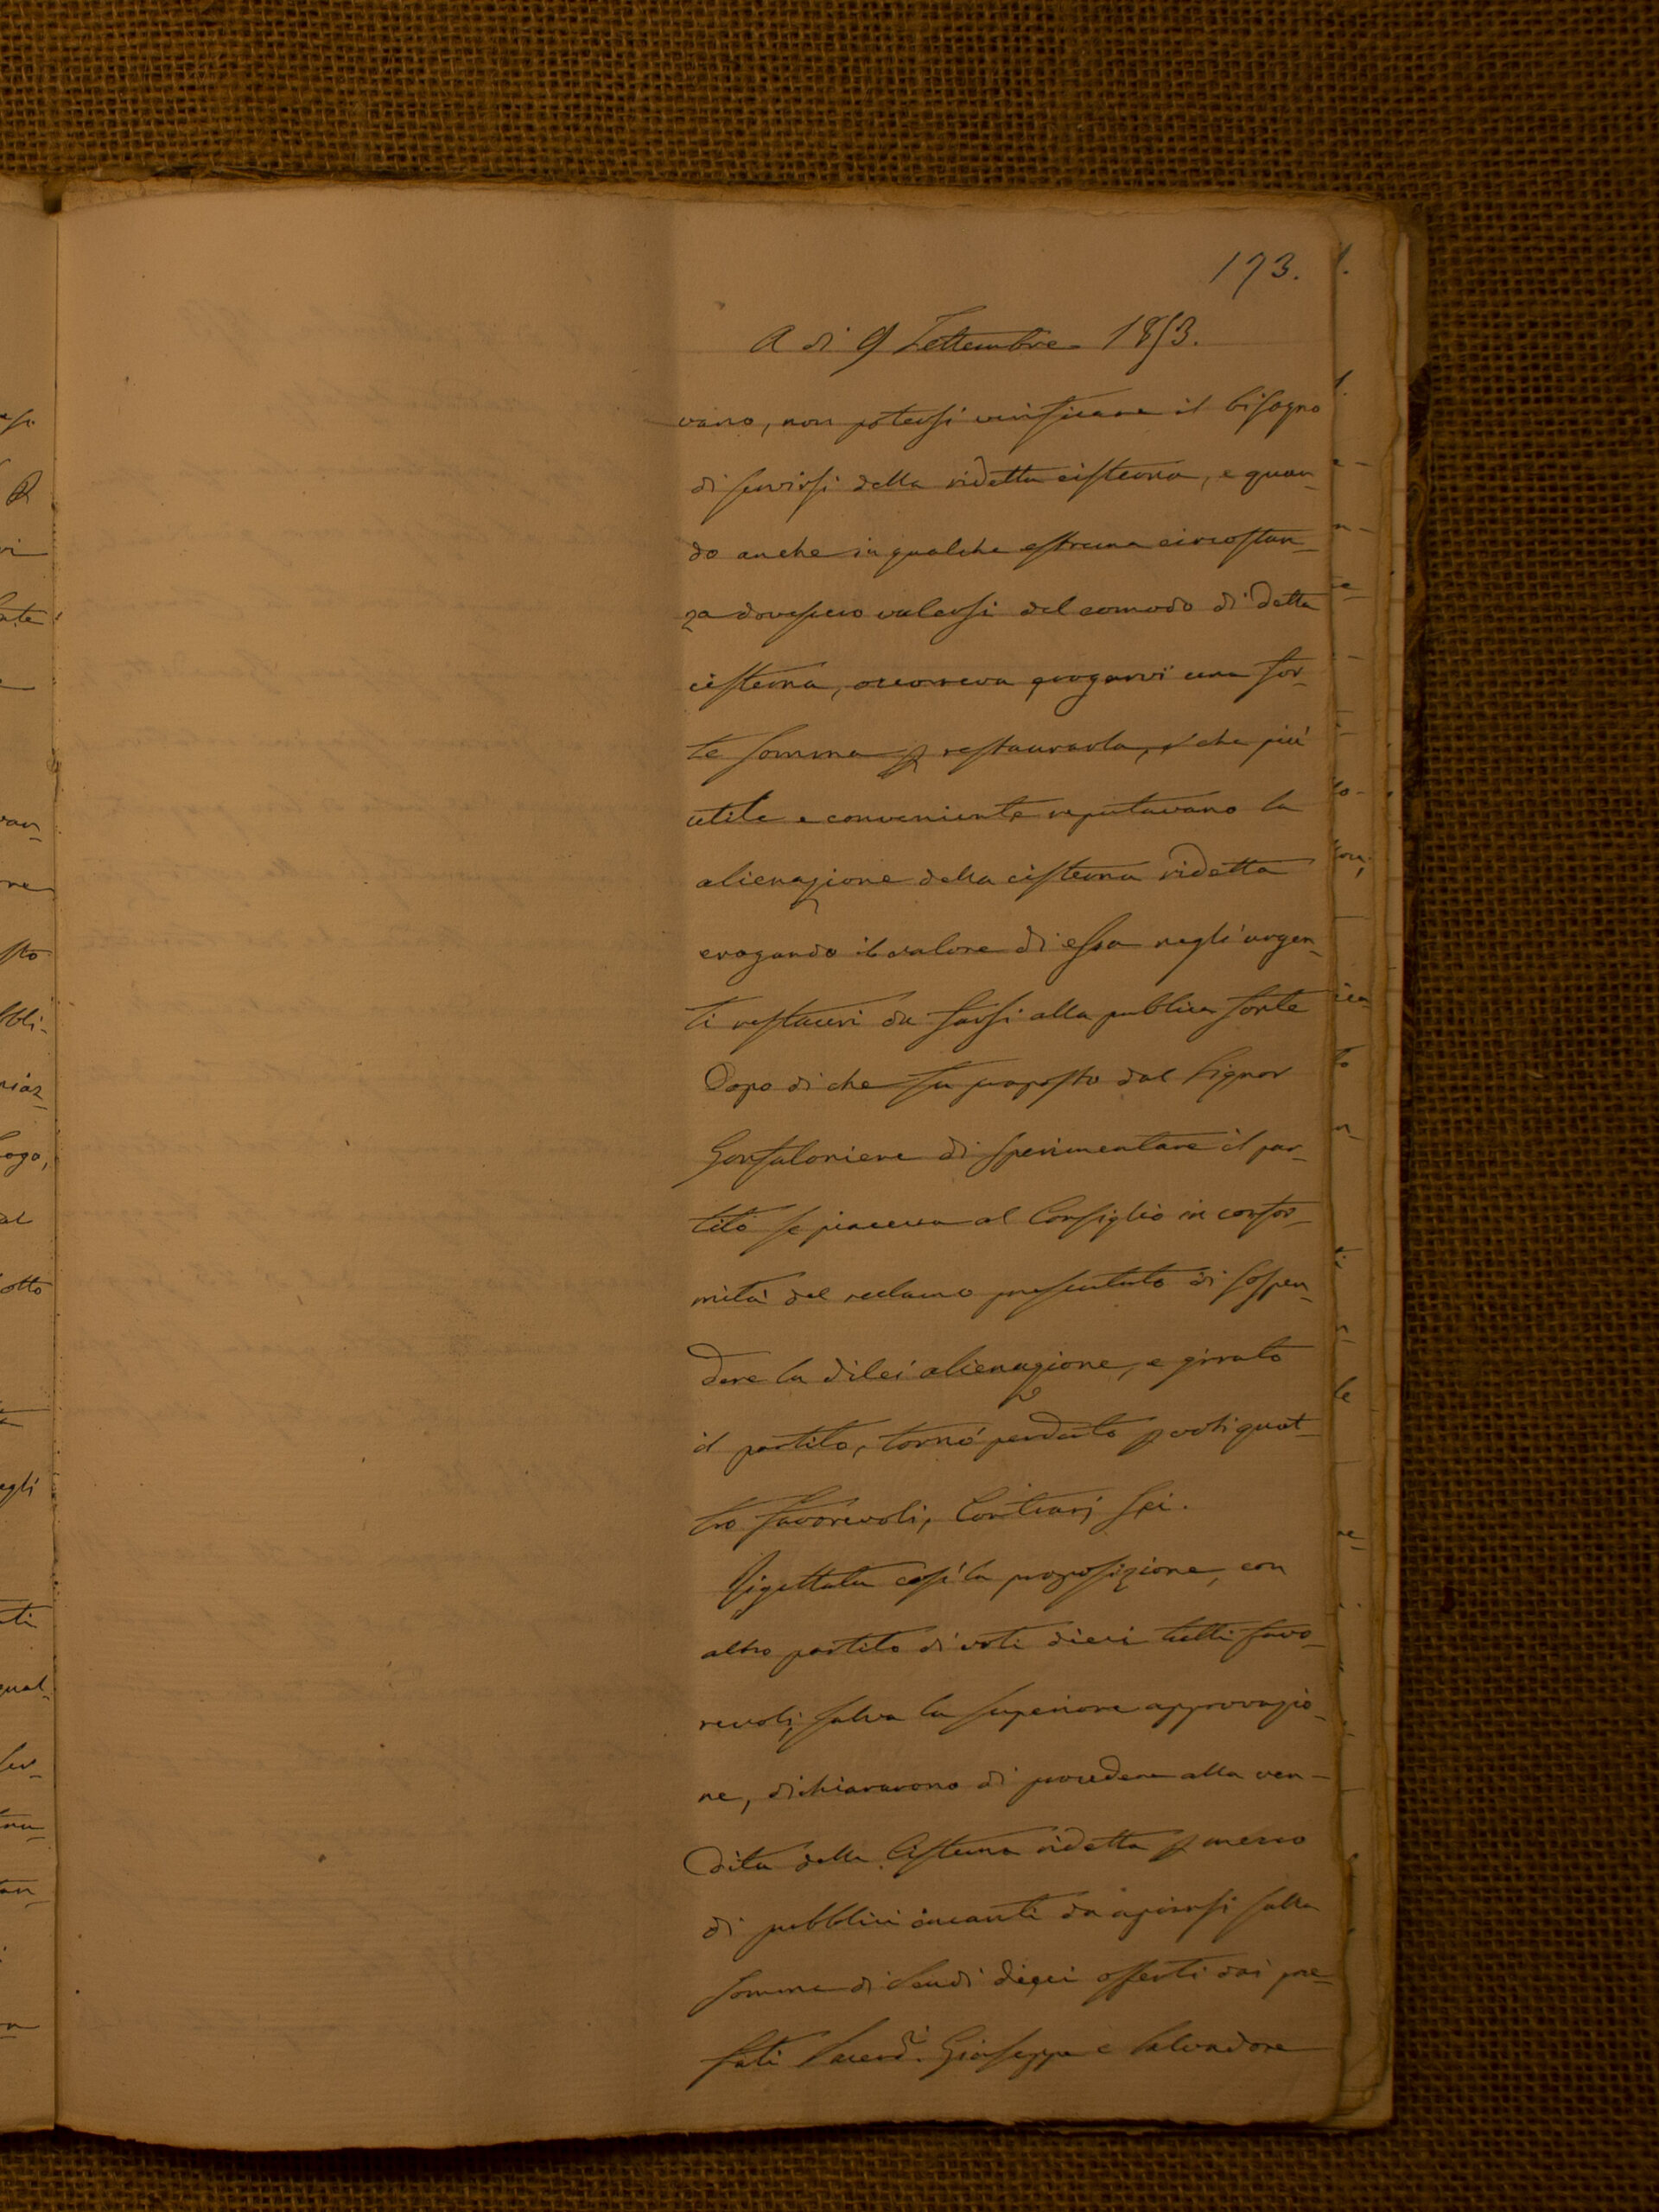 173.
A di 9 Settembre 1853.
vano, non potersi verificare il bisogno
di servirsi della ridetta cisterna, e quan_
do anche in qualche estrema circostan_
za dovessero valersi del comodo di detta
cisterna, occorreva erogarvi una for_
te somma p restaurarla, e che più
utile e conveniente reputavano la
alienazione della cisterna ridetta
erogando il valore di essa negli urgen_
ti restauri da farsi alla publica fonte
Dopo di che fu proposto dal Signor
Gonfaloniere di sperimentare il par_
tito se piaceva al Consiglio in confor_
mità del reclamo presentato di sospen_
dere la di lei alienazione, e girato
il partito, tornò perduto p voti quat_
tro favorevoli, Contrarj sei.
Rigettata così la proposizione, con
altro partito di voti dieci tutti favo_
revoli, salva la superiore approvazio_
ne, dichiararono di procedere alla ven_
dita della Cisterna ridetta p mezzo
di pubblici incanti da aprirsi sulla
somma di Scudi dieci offerti dai pre_
fati Sacerd. Giuseppe e Salvadore